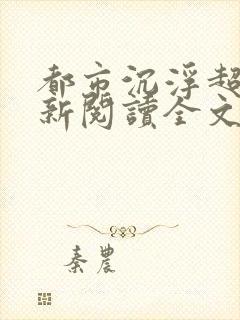 都市沉浮超
新閱讀全文
秦農